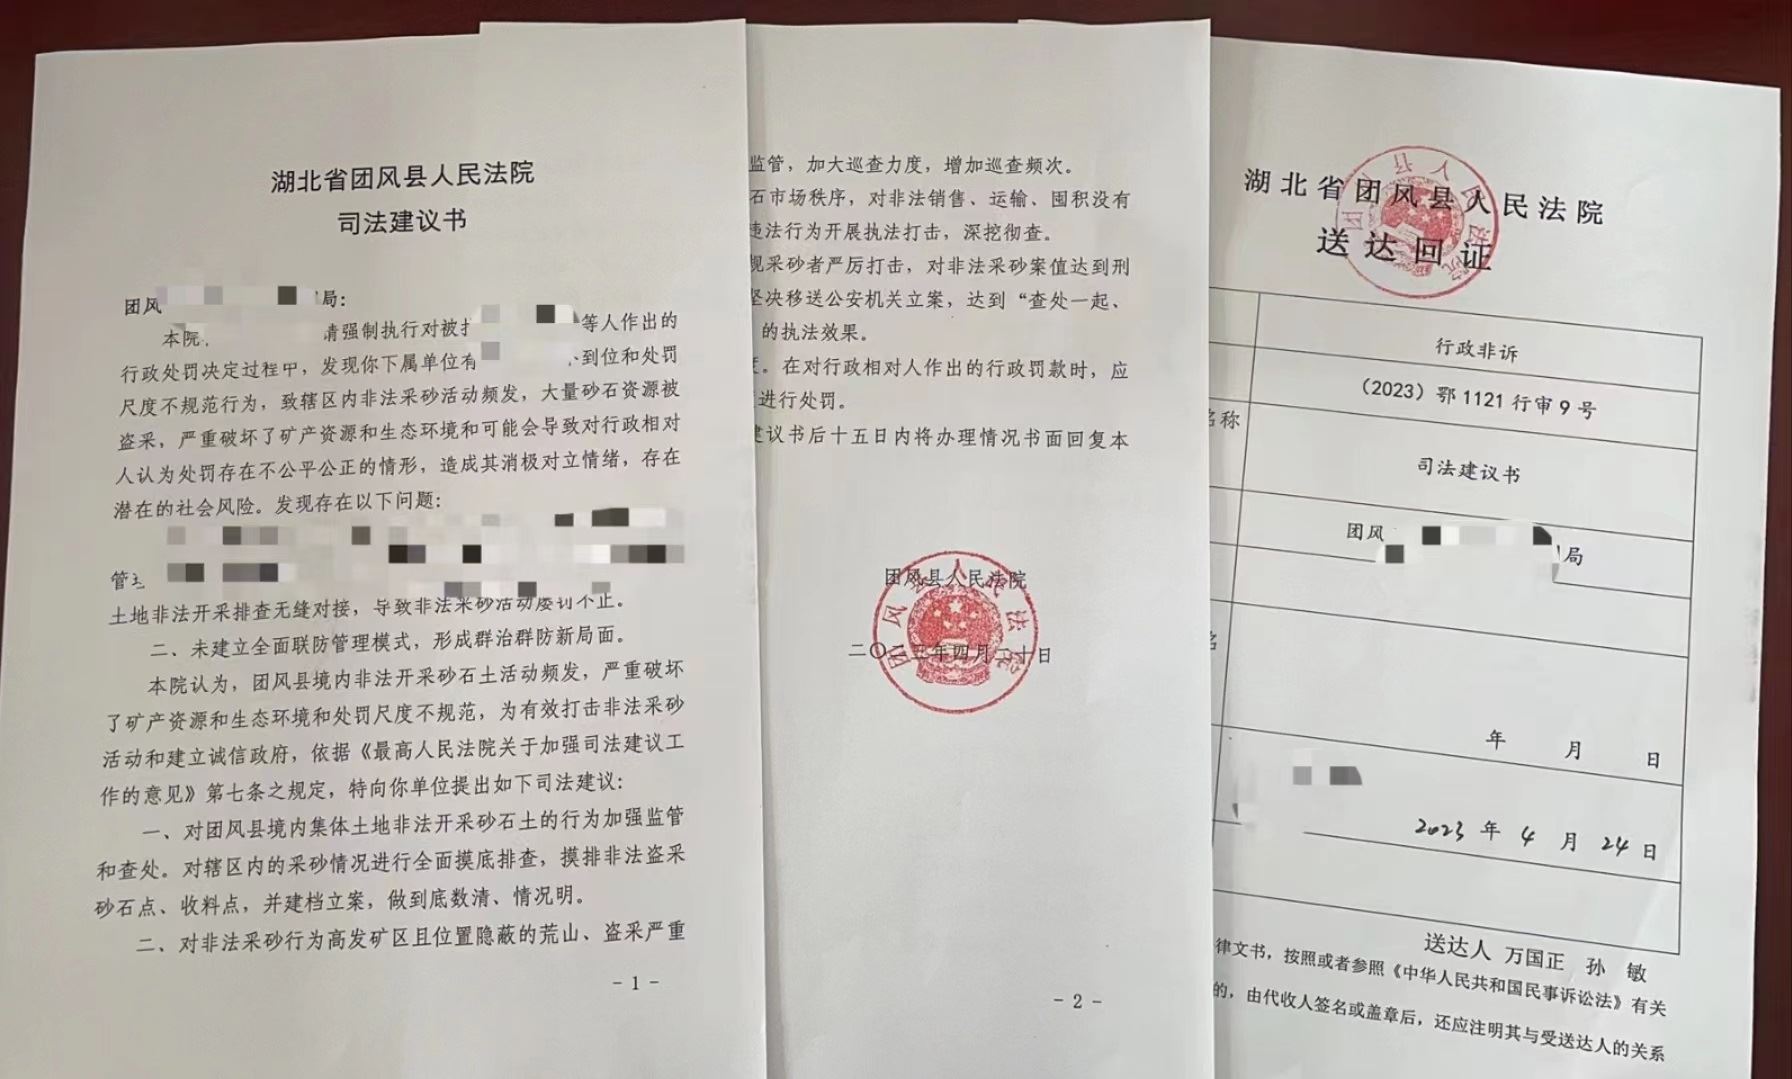 湖北省团风县人民法院
司法建议书
团风 局：
本院 请强制执行对被 等人作出的
行政处罚决定过程中，发现你下属单位有 到位和处罚
尺度不规范行为，致辖区内非法采砂活动频发，大量砂石资源被
盗采，严重破坏了矿产资源和生态环境和可能会导致对行政相对
人认为处罚存在不公平公正的情形，造成其消极对立情绪，存在
潜在的社会风险。发现存在以下问题：
管
土地非法开采排查无缝对接，导致非法采砂活动屡罚不止。
二、未建立全面联防管理模式，形成群治群防新局面。
本院认为，团风县境内非法开采砂石土活动频发，严重破坏
了矿产资源和生态环境和处罚尺度不规范，为有效打击非法采砂
活动和建立诚信政府，依据《最高人民法院关于加强司法建议工
作的意见》第七条之规定，特向你单位提出如下司法建议：
一、对团风县境内集体土地非法开采砂石土的行为加强监管
和查处。对辖区内的采砂情况进行全面摸底排查，摸排非法盗采
砂石点、收料点，并建档立案，做到底数清、情况明。
二、对非法采砂行为高发矿区且位置隐蔽的荒山、盗采严重
- 1 -
监管，加大巡查力度，增加巡查频次。
石市场秩序，对非法销售、运输、囤积没有
违法行为开展执法打击，深挖彻查。
规采砂者严厉打击，对非法采砂案值达到刑
坚决移送公安机关立案，达到“查处一起、
的执法效果。
。在对行政相对人作出的行政罚款时，应
进行处罚。
建议书后十五日内将办理情况书面回复本
团风县人民法院
二〇二三年四月二十日
团风县人民法院
- 2 -
湖北省团风县人民法院
送达回证
团风县人民法院
行政非诉
（2023）鄂1121行审9号
名称
司法建议书
团风 局
名
年 月 日
2023 年 4 月 24 日
送达人 万国正 孙 敏
律文书，按照或者参照《中华人民共和国民事诉讼法》有关
的，由代收人签名或盖章后，还应注明其与受送达人的关系